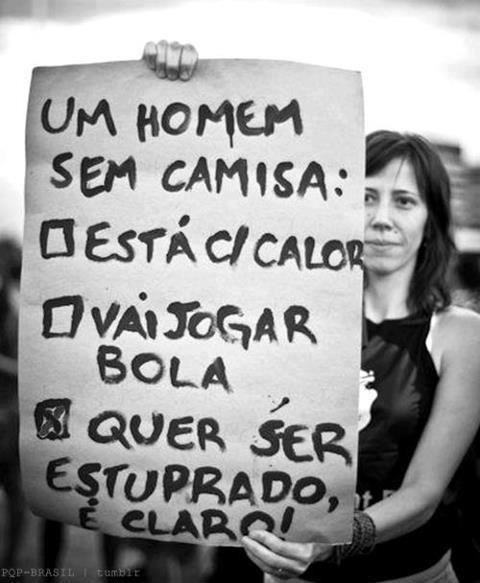 UM HOMEM
SEM CAMISA:
ESTÁ C/ CALOR
VAI JOGAR
BOLA
QUER SER
ESTUPRADO,
É CLARO!
PQP-BRASIL | tumblr